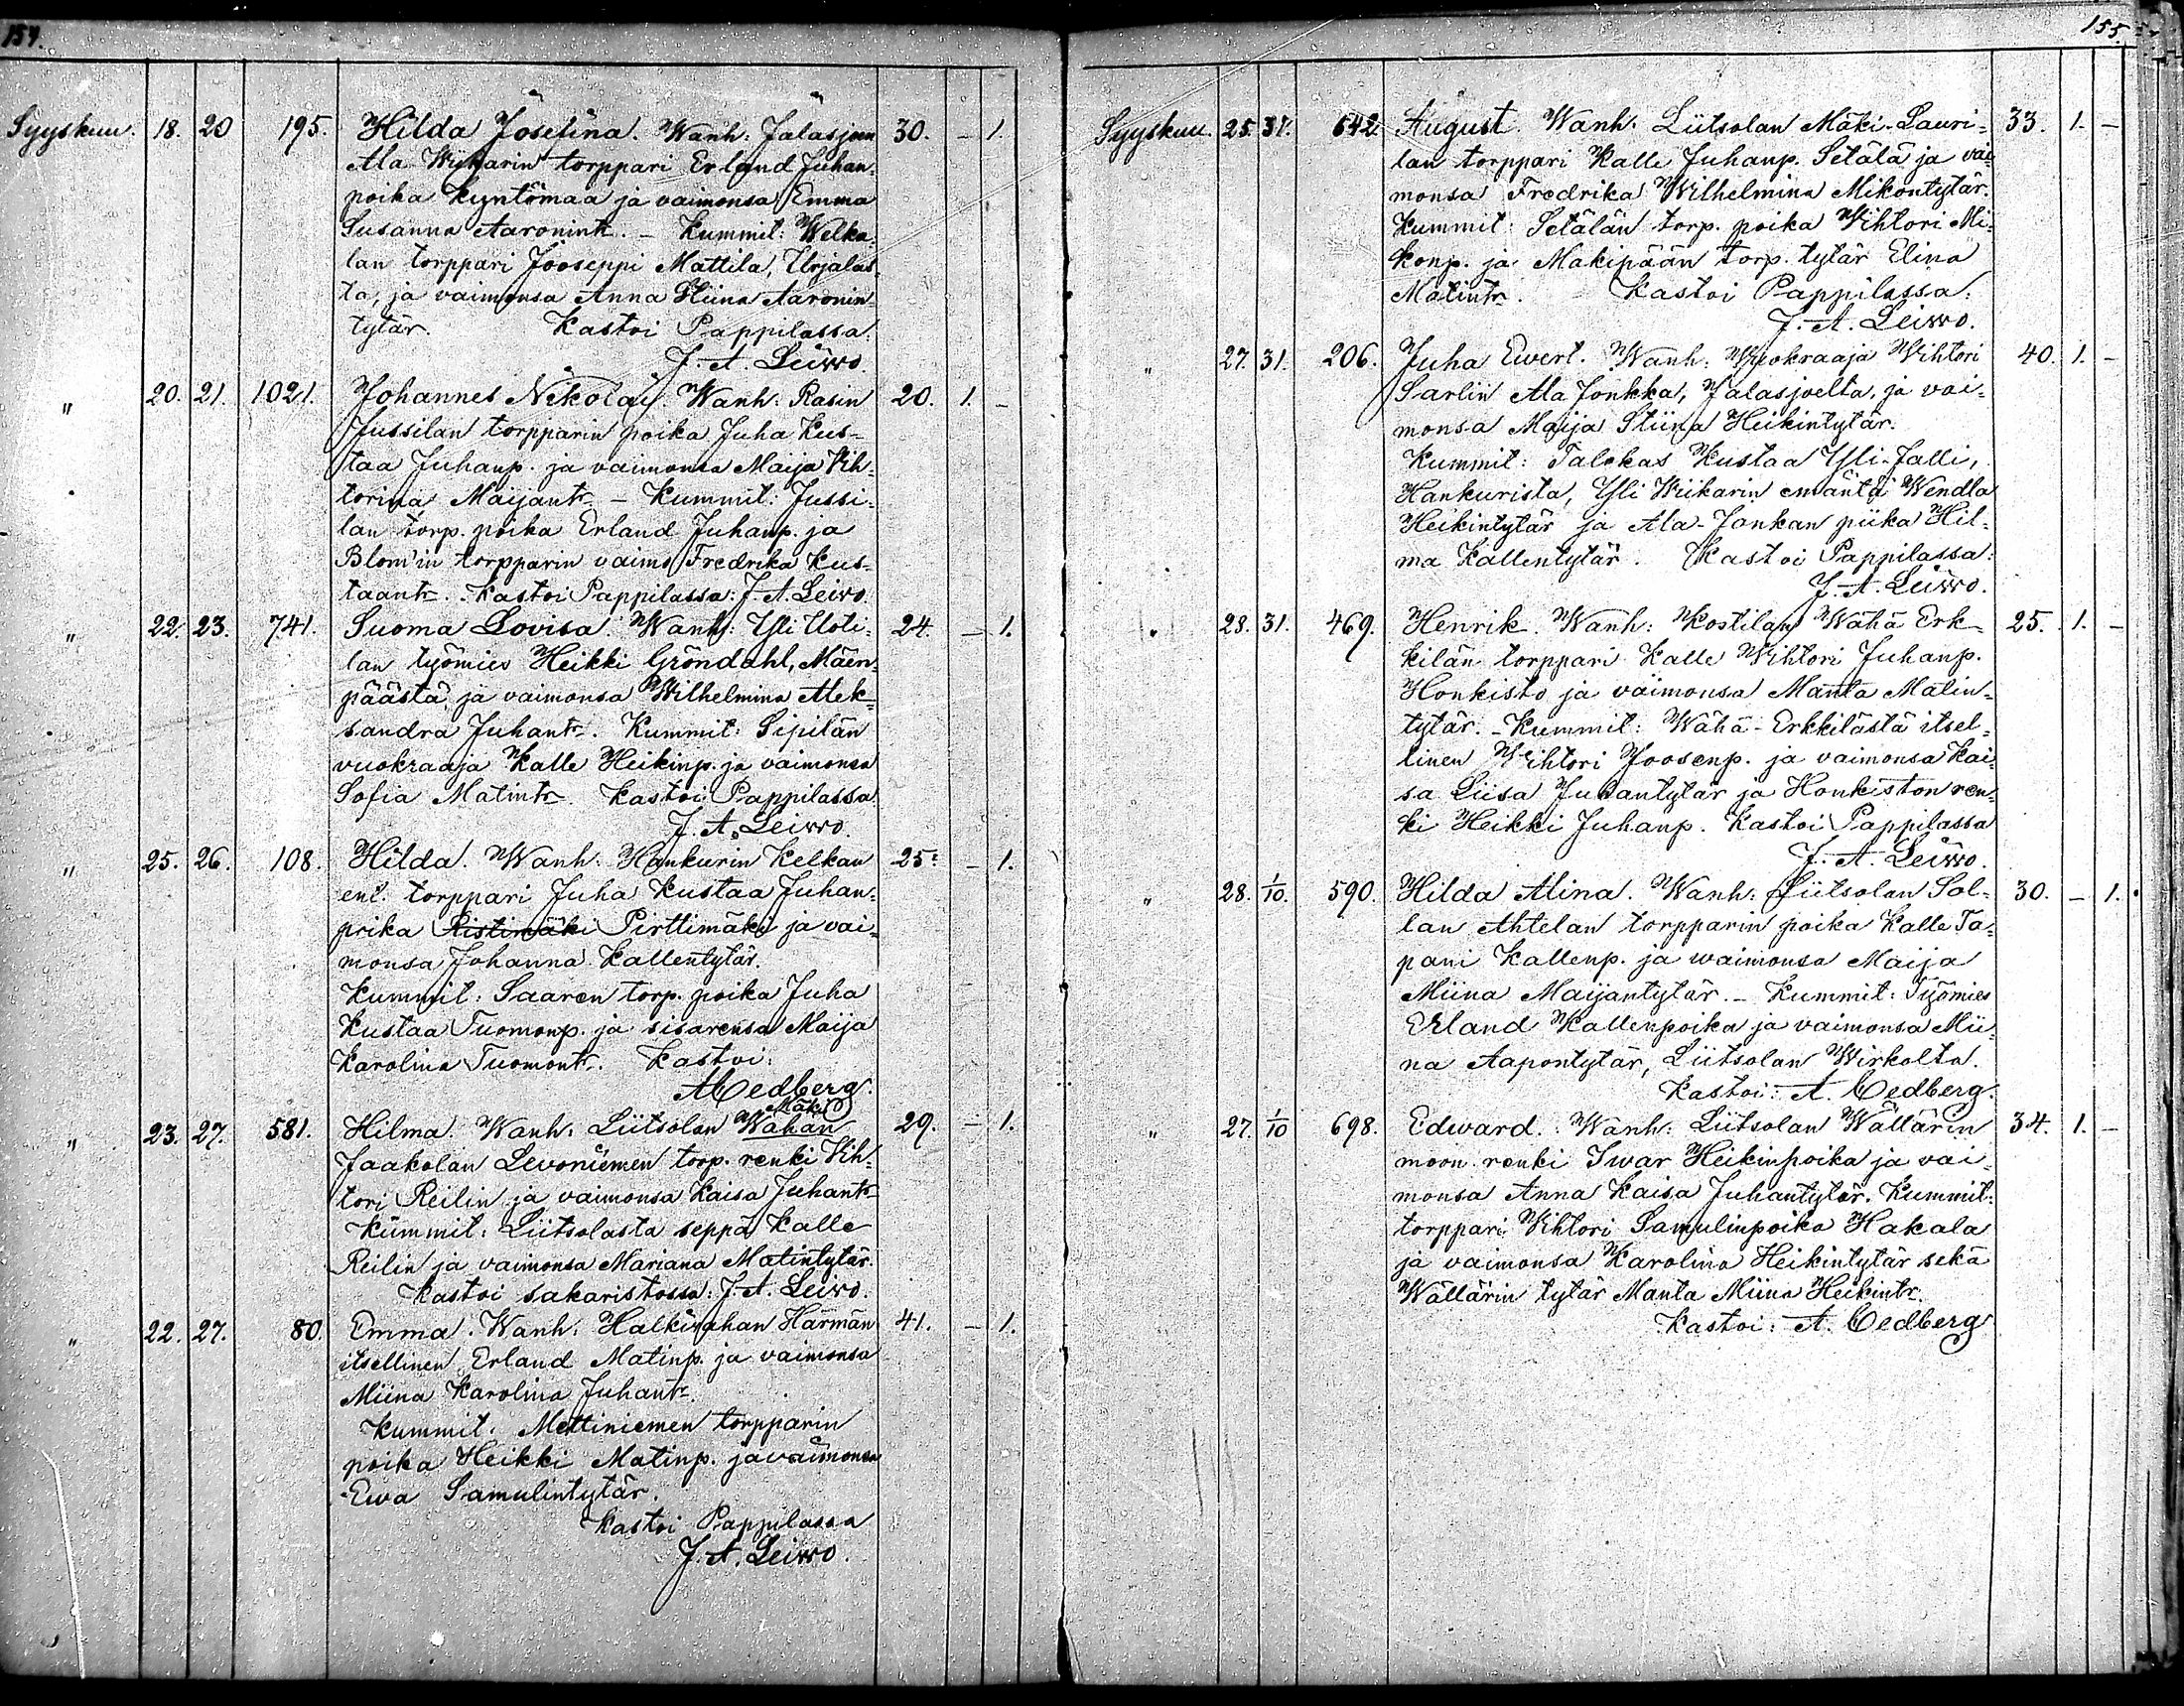 154.
Syyskuu. 18. 20 195. Hilda Josefina. Wanh: Jalasjoen 30. – 1.
Ala Wiikarin torppari Erland Juhan-
poika Kyntömaa ja vaimonsa Emma
Susanna Aaronintr. – Kummit: Welka-
lan torppari Jooseppi Mattila, Urjalas-
ta, ja vaimonsa Anna Stiina Aaronin-
tytär. Kastoi Pappilassa:
J. A. Leiwo.
" 20. 21. 1021. Johannes Nikolai. Wanh: Rasin 20. 1. –
Jussilan torpparin poika Juha Kus-
taa Juhanp. ja vaimonsa Maija Vih-
torina Maijantr. – Kummit: Jussi-
lan torp. poika Erland Juhanp. ja
Blom'in torpparin vaimo Fredrika Kus-
taantr. Kastoi Pappilassa: J. A. Leiwo.
" 22. 23. 741. Suoma Lovisa. Wanh: Yli Uoti- 24. – 1.
lan työmies Heikki Gröndahl, Mäen-
päästä ja vaimonsa Wilhelmina Alek-
sandra Juhantr. Kummit: Sipilän
vuokraaja Kalle Heikinp. ja vaimonsa
Sofia Matintr. Kastoi Pappilassa
J. A. Leiwo.
" 25. 26. 108. Hilda. Wanh: Hankurin Kelkan 25. – 1.
ent. torppari Juha Kustaa Juhan-
poika Ristimäki Pirttimäki ja vai-
monsa Johanna Kallentytär.
Kummit: Saaren torp. poika Juha
Kustaa Tuomonp. ja sisarensa Maija
Karolina Tuomontr. Kastoi:
A Cedberg.
Mäki
" 23. 27. 581. Hilma. Wanh: Liitsolan Wähän 29. – 1.
Jaakolan Levoniemen torp. renki Vih-
tori Reilin ja vaimonsa Kaisa Juhantr.
Kummit: Liitsolasta seppä Kalle
Reilin ja vaimonsa Mariana Matintytär.
Kastoi sakaristossa: J. A. Leiwo.
" 22. 27. 80. Emma. Wanh: Halkivahan Härmän 41. – 1.
itsellinen Erland Matinp. ja vaimonsa
Miina Karolina Juhantr.
Kummit: Mettiniemen torpparin
poika Heikki Matinp. ja vaimonsa
Ewa Samulintytär.
Kastoi Pappilassa
J. A. Leiwo.
155.
Syyskuu. 25. 31. 642 August. Wanh: Liitsolan Mäki-Lauri- 33. 1. –
lan torppari Kalle Juhanp. Setälä ja vai-
monsa Fredrika Wilhelmina Mikontytär.
Kummit: Setälän torp. poika Wihtori Mi-
konp. ja Mäkipään torp. tytär Elina
Matintr. Kastoi Pappilassa:
J. A. Leiwo.
" 27. 31. 206. Juha Ewert. Wanh: Wuokraaja Wihtori 40. 1. –
Sarlin Ala Jonkka, Jalasjoelta, ja vai-
monsa Maija Stiina Heikintytär.
Kummit: Talokas Kustaa Yli-Jalli,
Hankurista, Yli Wiikarin emäntä Wendla
Heikintytär ja Ala-Jonkan piika Hil-
ma Kallentytär. Kastoi Pappilassa:
J. A. Leiwo.
" 28. 31. 469. Henrik. Wanh: Kostilan Wähä Erk- 25. 1. –
kilän torppari Kalle Wihtori Juhanp.
Honkisto ja vaimonsa Manta Matin-
tytär. – Kummit: Wähä-Erkkilästä itsel-
linen Wihtori Joosenp. ja vaimonsa Kai-
sa Liisa Juhantytär ja Honkiston ren-
ki Heikki Juhanp. Kastoi Pappilassa
J. A. Leiwo.
" 28. 1/10. 590. Hilda Alina. Wanh: Liitsolan Sol- 30. – 1.
lan Ahtelan torpparin poika Kalle Ta-
pani Kallenp. ja waimonsa Maija
Miina Maijantytär. – Kummit: Työmies
Erland Kallenpoika ja vaimonsa Mii-
na Aapontytär, Liitsolan Wirkolta.
Kastoi: A. Cedberg.
" 27. 1/10 698. Edward. Wanh: Liitsolan Wällärin 34. 1. –
moon renki Iwar Heikinpoika ja vai-
monsa Anna Kaisa Juhantytär. Kummit:
torppari Wihtori Samulinpoika Hakala
ja vaimonsa Karolina Heikintytär sekä
Wällärin tytär Manta Miina Heikintr.
Kastoi: A. Cedberg